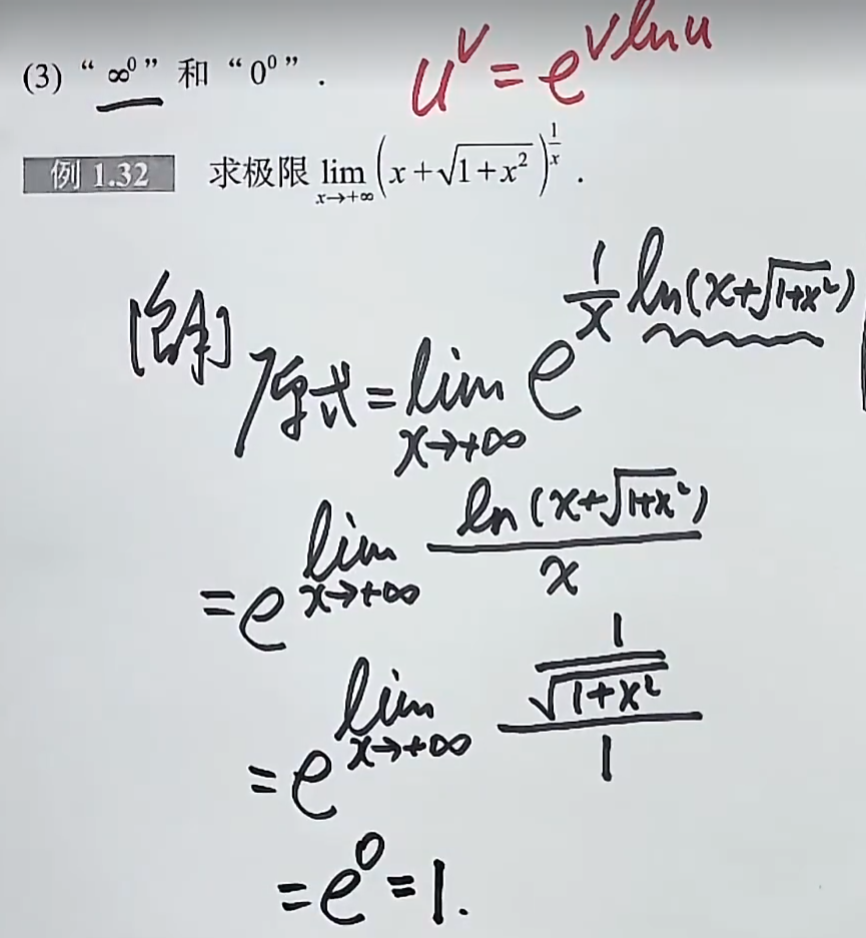 (3) “ ∞⁰ ” 和 “ 0⁰ ” . u^v = e^{v ln u}
例 1.32 求极限 lim_{x→+∞} (x+√(1+x²))^{1/x} .
[解] 原式 = lim_{x→+∞} e^{1/x ln(x+√(1+x²))}
= e^{lim_{x→+∞} ln(x+√(1+x²))/x}
= e^{lim_{x→+∞} (1/√(1+x²))/1}
= e⁰ = 1.